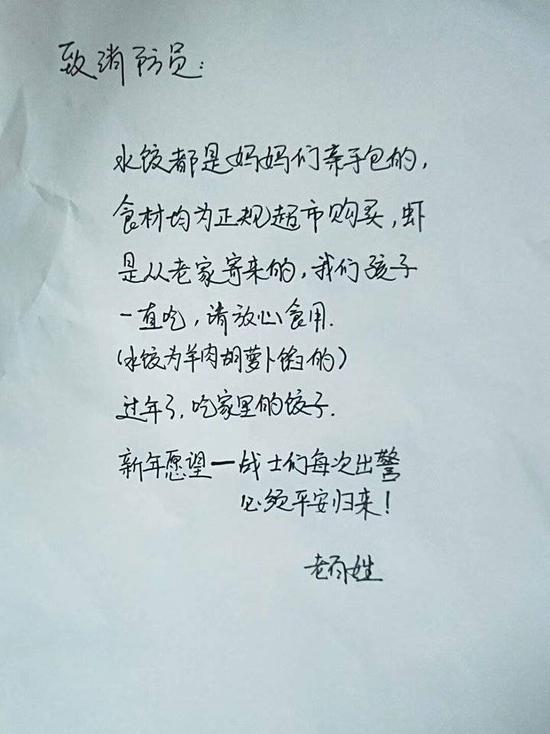 致消防员：
水饺都是妈妈们亲手包的，
食材均为正规超市购买，虾
是从老家寄来的，我们孩子
一直吃，请放心食用.
(水饺为羊肉胡萝卜馅的)
过年了，吃家里的饺子.
新年愿望一战士们每次出警
必须平安归来！
老百姓